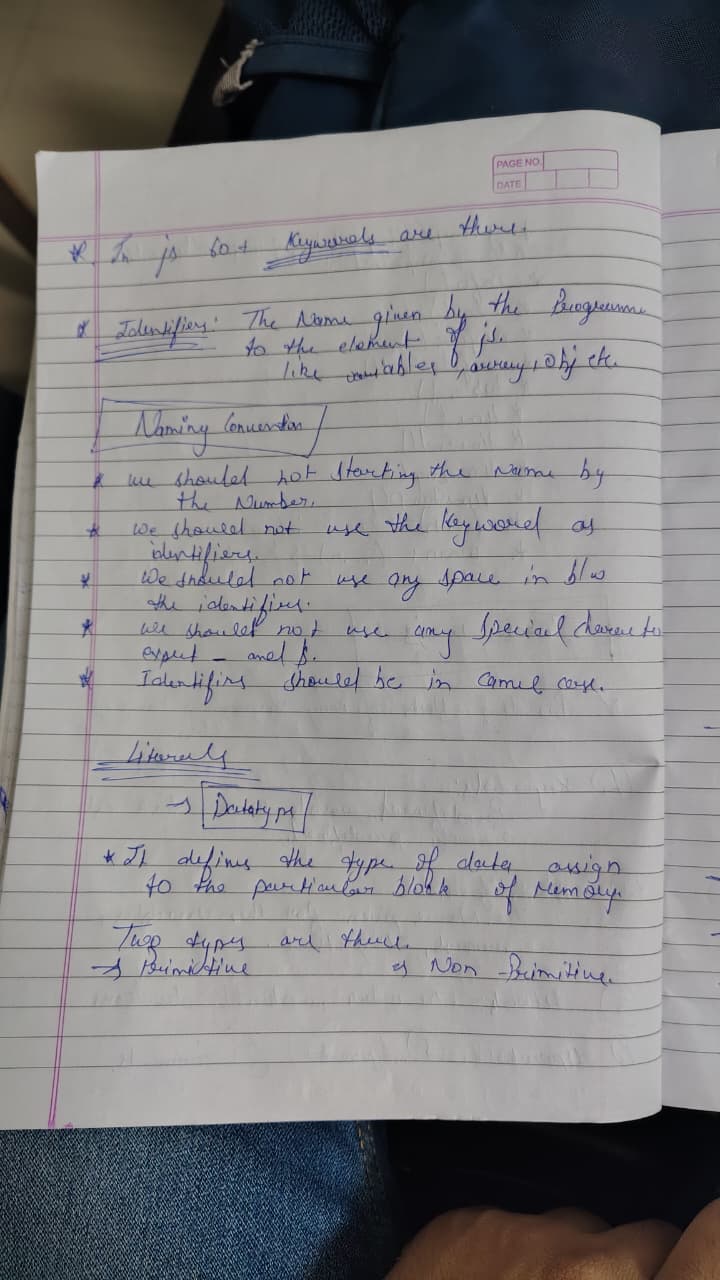 PAGE NO.
DATE
* In js 60+ Keywords are there.
* Identifiers: The Name given by the Programme
to the element of js.
like variables, array, obj etc.
Naming Convention
* we should not starting the name by
the Number.
* We should not use the keyword as
identifiers.
* We should not use any space in b/w
the identifiers.
* we should not use any special character
expect _ and $.
* Identifirs should be in camel case.
Literals
→ Datatype
* It defines the type of data assign
to the particular block of memory.
Two types are there.
→ Primitive → Non-Primitive.